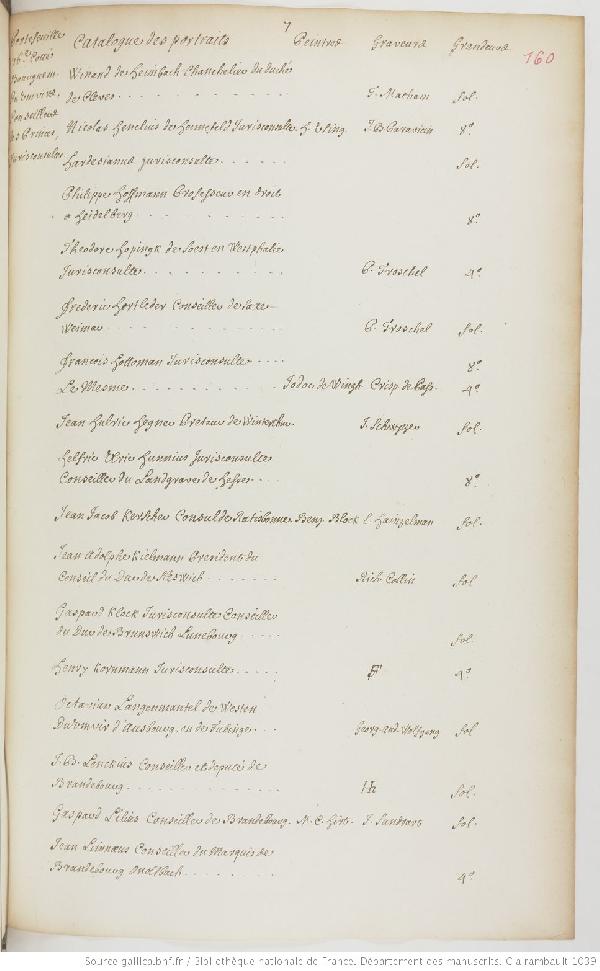 7
160
Catalogue des portraits Peintres Graveurs Grandeurs
Winand de Heimbach Chancelier du duché
de Cleves J. Matham fol.
Nicolas Henelius de Hennefeld Jurisconsulte 8º
Hardesianus jurisconsulte fol.
Philippe Hoffmann Professeur en droit
a Heidelberg 8º
Theodore Hopingk de Soest en Westphalie
Jurisconsulte P. Troschel 4º
Frederic Hortleder Conseiller de Saxe
Weimar P. Troschel fol.
François Hottoman Jurisconsulte 8º
Le Mesme Jodoc. de Wingh Crisp de Pass. 4º
Jean Hulric Hegner de Winterthur fol.
Helfric Ulric Hunnius Jurisconsulte
Conseiller du Landgrave de Hesse 8º
Jean Jacob Kerscher Consul de Ratisbonne Benj. Block E. Hainzelman fol.
Jean Adolphe Kielmann President du
Conseil du Duc de Rich. Collin fol
Gaspard Klock Jurisconsulte Conseiller
du Duc de Brunswich Lunebourg fol.
Henry Kornmann Jurisconsulte 4º
Octavian Langenmantel de Westen
Duumvir d'Ausbourg Georg. And. Wolfgang fol
J. B. Lenckius Conseiller et deputé de
Brandebourg fol.
Gaspard Lilius Conseiller de Brandebourg J. Sandrart fol.
Jean Limnæus Conseiller du Marquis de
Brandebourg Onoltbach 4º
Source gallica.bnf.fr / Bibliothèque nationale de France. Département des manuscrits. Clairambault 1039